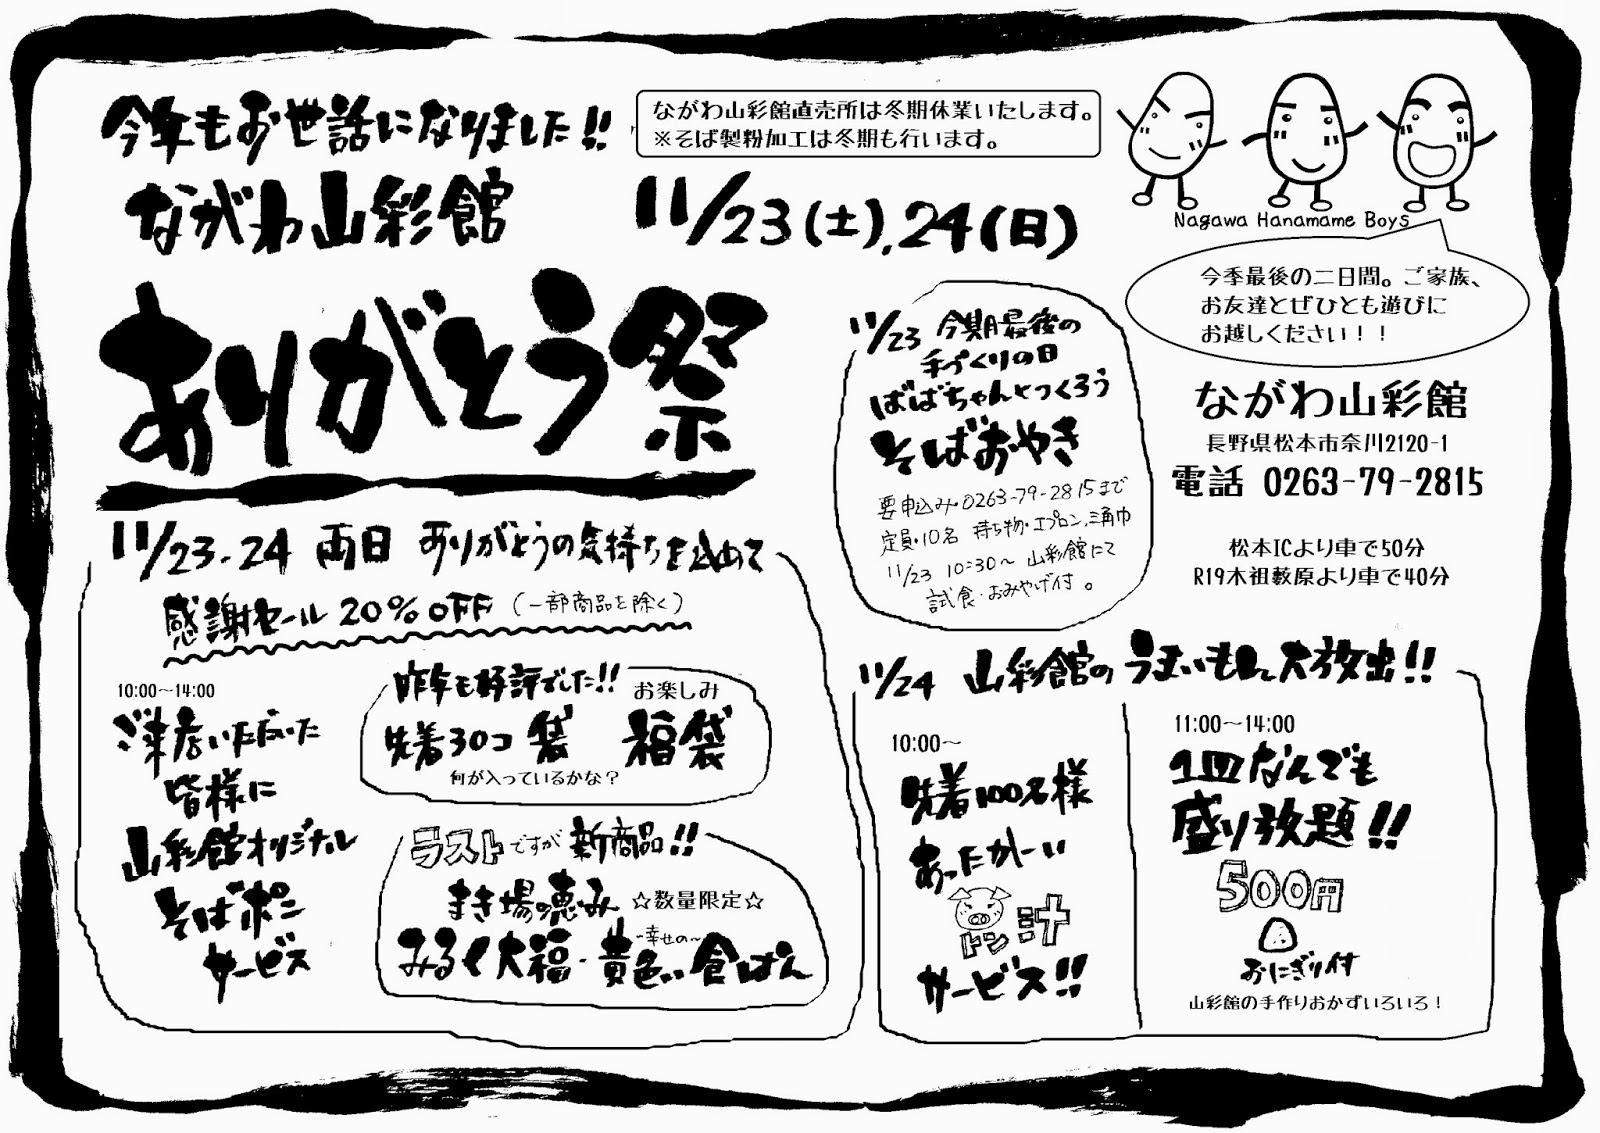 今年もお世話になりました!!
ながわ山彩館
ながわ山彩館直売所は冬期休業いたします。
※そば製粉加工は冬期も行います。
11/23(土),24(日)
ありがとう祭
Nagawa Hanamame Boys
今季最後の二日間。ご家族、
お友達とぜひとも遊びに
お越しください!!
ながわ山彩館
長野県松本市奈川2120-1
電話 0263-79-2815
松本ICより車で50分
R19木祖藪原より車で40分
11/23 今期最後の
手づくりの日
ばばちゃんとつくろう
そばおやき
要申込み・0263-79-2815まで
定員・10名 持ち物・エプロン、三角巾
11/23 10:30~ 山彩館にて
試食・おみやげ付。
11/23.24 両日 ありがとうの気持ちを込めて
感謝セール 20%OFF (一部商品を除く)
10:00~14:00
ご来店いただいた
皆様に
山彩館オリジナル
そばポン
サービス
昨年も好評でした!!
お楽しみ
先着30コ 袋 福袋
何が入っているかな?
ラストですが 新商品!!
まき場の恵み ☆数量限定☆
みるく大福・~幸せの~黄色い食ぱん
11/24 山彩館のうまいもの大放出!!
10:00~
先着100名様
あったかーい
トン汁
サービス!!
11:00~14:00
1皿なんでも
盛り放題!!
500円
おにぎり付
山彩館の手作りおかずいろいろ!